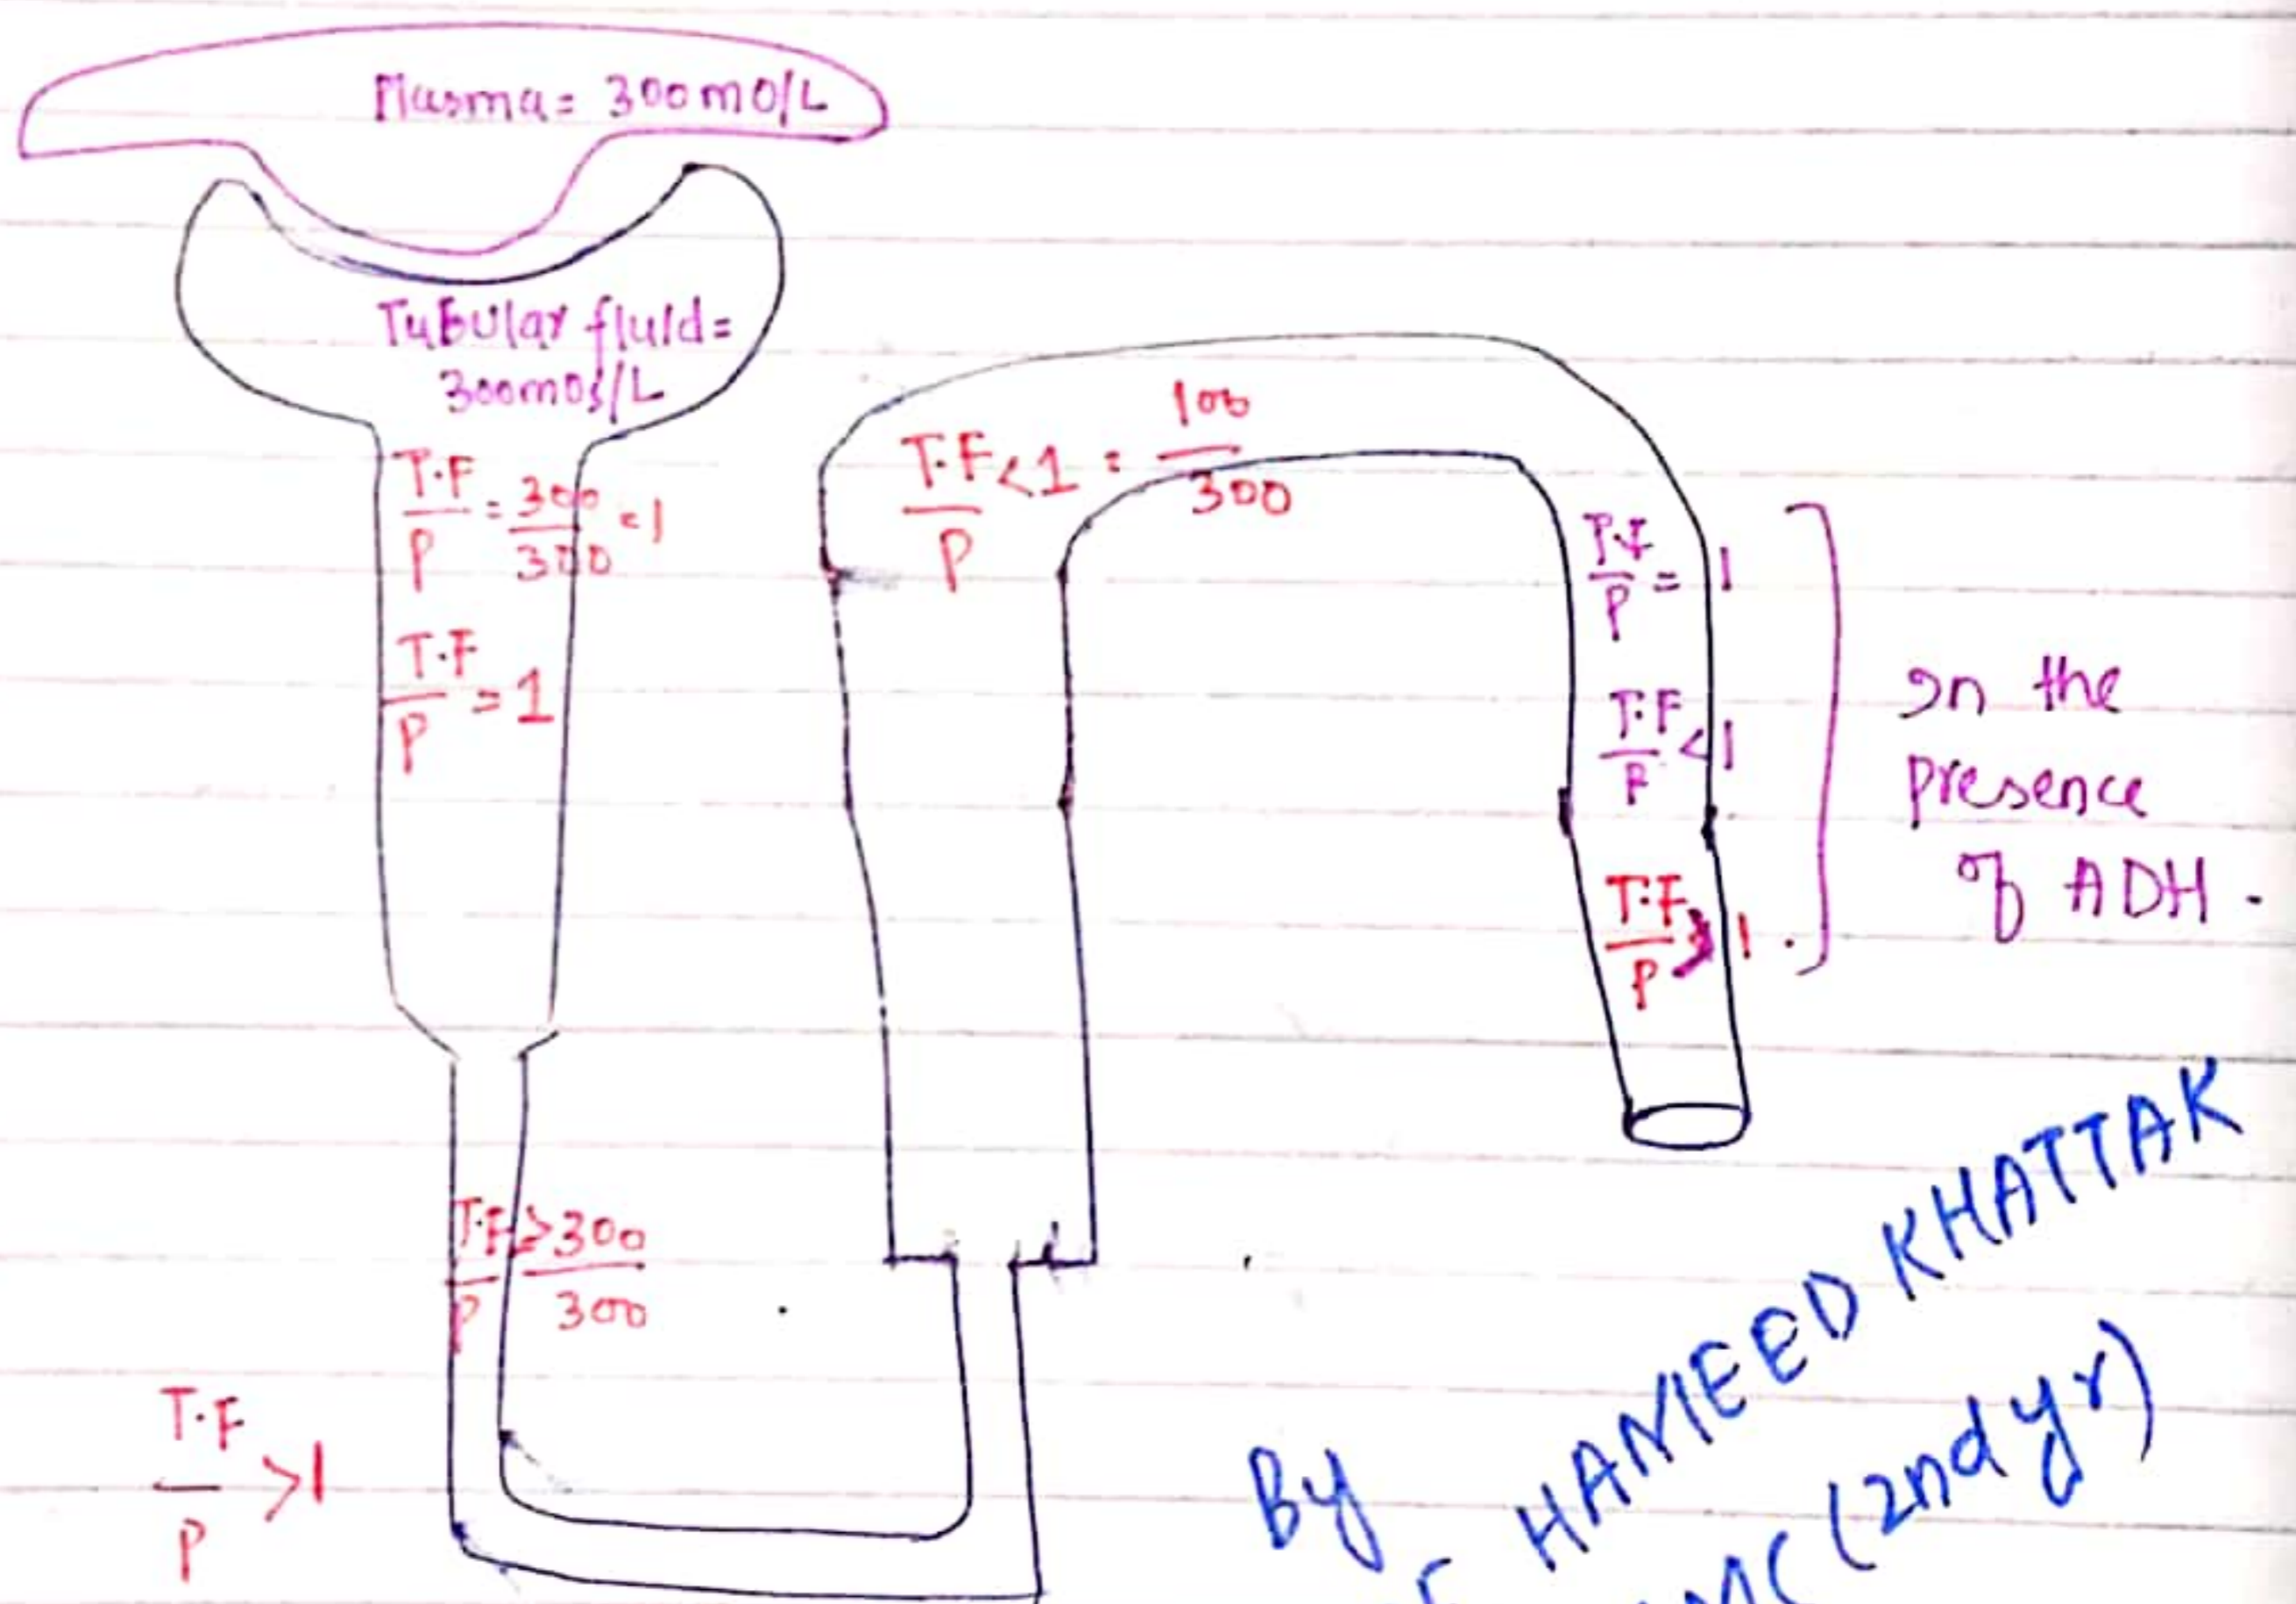 Plasma = 300mO/L
Tubular fluid =
300mos/L
T.F/P = 300/300 = 1
T.F/P = 1
T.F/P > 300/300
T.F/P > 1
T.F/P < 1 = 100/300
T.F/P = 1
T.F/P < 1
T.F/P > 1 .
In the
presence
of ADH .
By
HAMEED KHATTAK
(2nd yr)